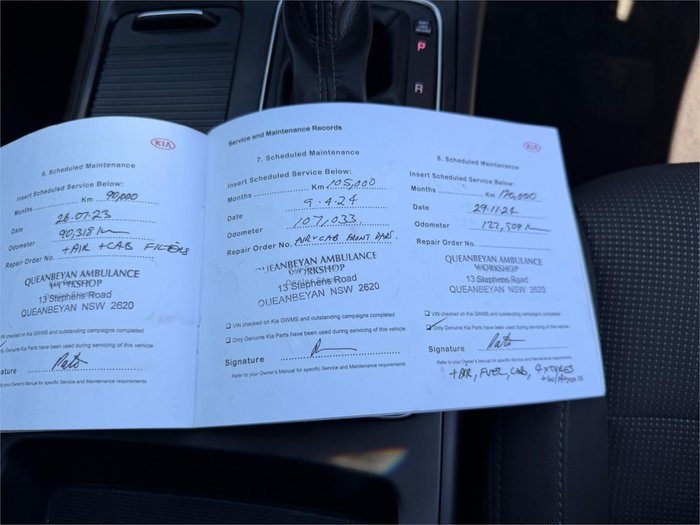 P
R
KIA
6. Scheduled Maintenance
Insert Scheduled Service Below:
Months Km 90,000
Date 26.07.23
Odometer 90,318 km
Repair Order No. +AIR +CAB FILTERS
QUEANBEYAN AMBULANCE
WORKSHOP
13 Stephens Road
QUEANBEYAN NSW 2620
VIN checked on Kia GWMS and outstanding campaigns completed
Only Genuine Kia Parts have been used during servicing of this vehicle
ature
to your Owner's Manual for specific Service and Maintenance requirements
Service and Maintenance Records
7. Scheduled Maintenance
Insert Scheduled Service Below:
Months Km 105,000
Date 9.4.24
Odometer 107,033
Repair Order No. AIR+CAB FRONT PADS.
QUEANBEYAN AMBULANCE
WORKSHOP
13 Stephens Road
QUEANBEYAN NSW 2620
VIN checked on Kia GWMS and outstanding campaigns completed
Only Genuine Kia Parts have been used during servicing of this vehicle
Signature
Refer to your Owner's Manual for specific Service and Maintenance requirements
KIA
8. Scheduled Maintenance
Insert Scheduled Service Below:
Months Km 120,000
Date 29.11.24
Odometer
Repair Order No.
QUEANBEYAN AMBULANCE
WORKSHOP
13 Stephens Road
QUEANBEYAN NSW 2620
VIN checked on Kia GWMS and outstanding campaigns completed
Only Genuine Kia Parts have been used during servicing of this vehicle
Signature
Refer to your Owner's Manual for specific Service and Maintenance requirements
+AIR, FUEL, CAB, 4xTYRES
+W/A page 25